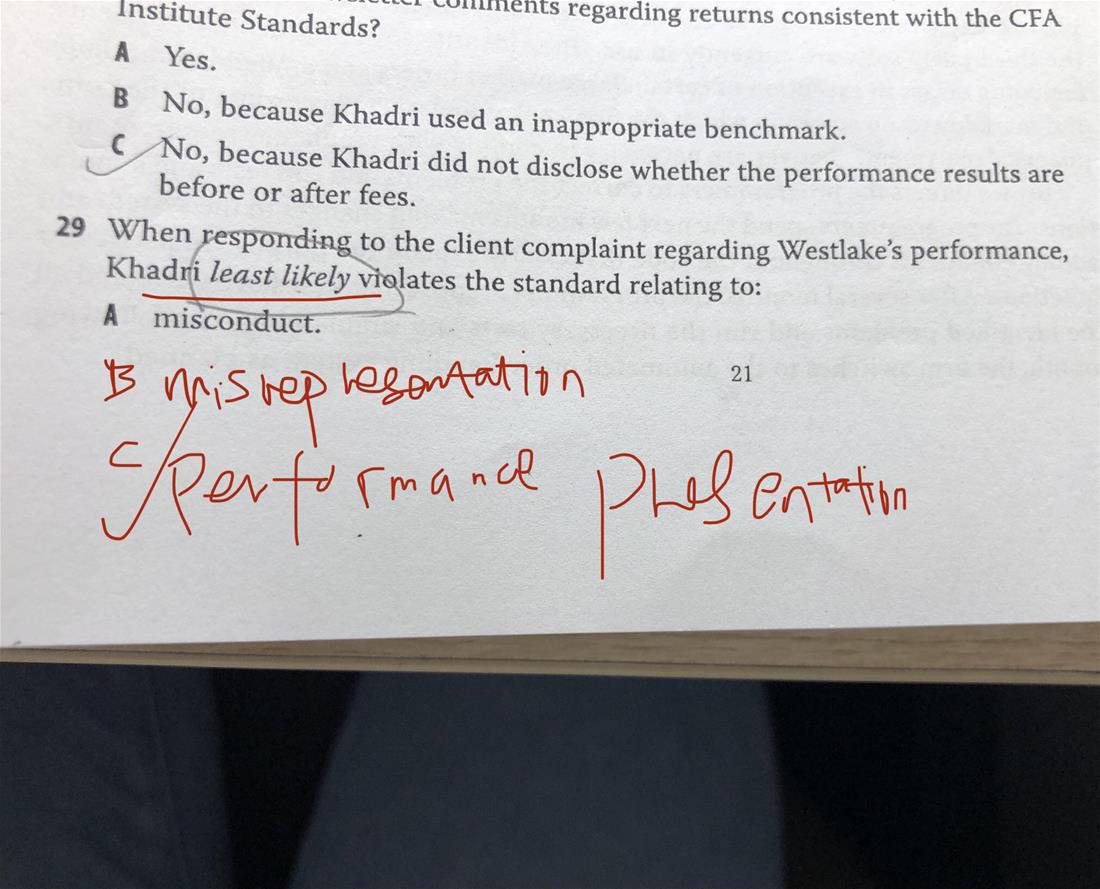 comments regarding returns consistent with the CFA
Institute Standards?
A Yes.
B No, because Khadri used an inappropriate benchmark.
C No, because Khadri did not disclose whether the performance results are
before or after fees.
29 When responding to the client complaint regarding Westlake's performance,
Khadri least likely violates the standard relating to:
A misconduct.
B misrepresentation
21
C performance presentation